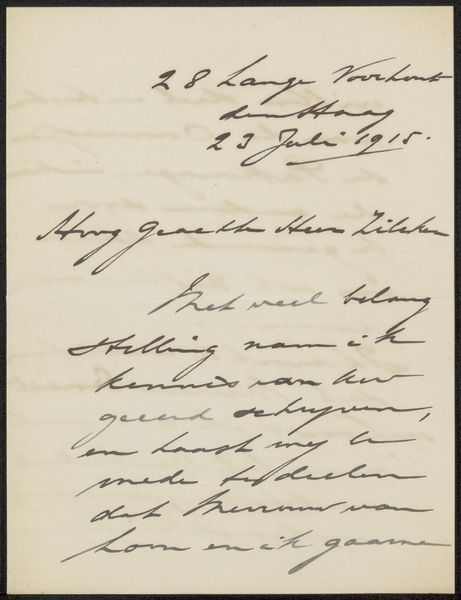 28 Lange Voorhout
den Haag
23 Juli 1915.
Hoog Geachte Heer Zilcken
Met veel belang
stelling nam ik
kennis van Uw
geeerd schrijven,
en haast mij U
mede te deelen
dat Mevrouw van
Loon en ik gaarne